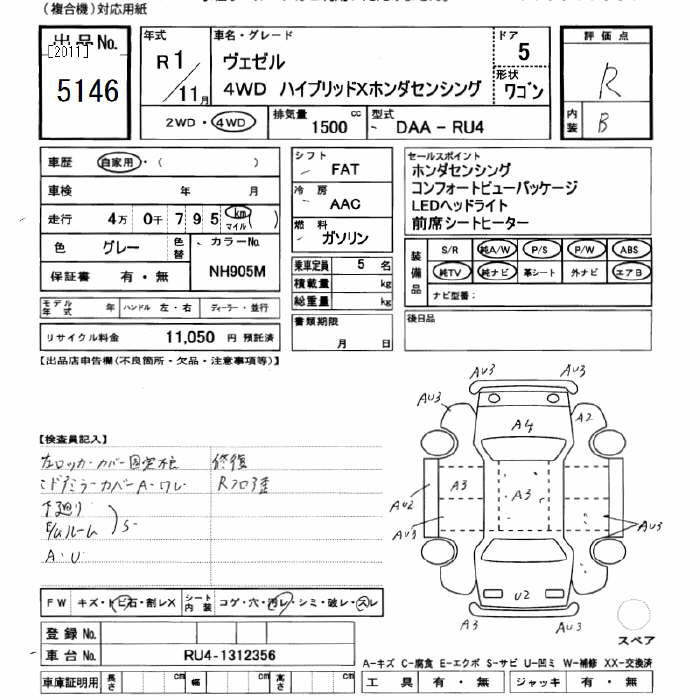 (複合機)対応用紙
出品No.
[2011]
5146
年式
R1
11月
車名・グレード
ヴェゼル
4WD ハイブリッドXホンダセンシング
ドア
5
形状
ワゴン
評価点
R
内装
B
2WD・4WD
排気量
1500
cc
型式
DAA-RU4
車歴
自家用・( )
車検 年 月
走行
4万 0千 7 9 5 (km マイル)
色 グレー
色替
カラーNo.
NH905M
保証書 有・無
モデル年式 年
ハンドル 左・右
ディーラー・並行
リサイクル料金 11,050 円 預託済
シフト
FAT
冷房
AAC
燃料
ガソリン
乗車定員 5 名
積載量 kg
総重量 kg
書類期限
月 日
セールスポイント
ホンダセンシング
コンフォートビューパッケージ
LEDヘッドライト
前席シートヒーター
装備品
S/R 純A/W P/S P/W ABS
純TV 純ナビ 革シート 外ナビ エアB
ナビ型番:
後日品
【出品店申告欄(不良箇所・欠品・注意事項等)】
【検査員記入】
左ロッカーカバー固定
ミドアミラーカバーA・ワレ
下廻り
E/gルーム
S-
A・U
修復
Rフロア歪
AU3
AU3
AU3
A4
A2
A3
A3
AU2
AU3
AU3
U2
A3
AU3
スペア
FW キズ・トビ石・割レX
シート内装 コゲ・穴・汚レ・シミ・破レ・スレ
登録No.
車台No. RU4-1312356
車庫証明用 長さ cm 幅 cm 高さ cm
A-キズ C-腐食 E-エクボ S-サビ U-凹ミ W-補修 XX-交換済
工具 有・無 ジャッキ 有・無